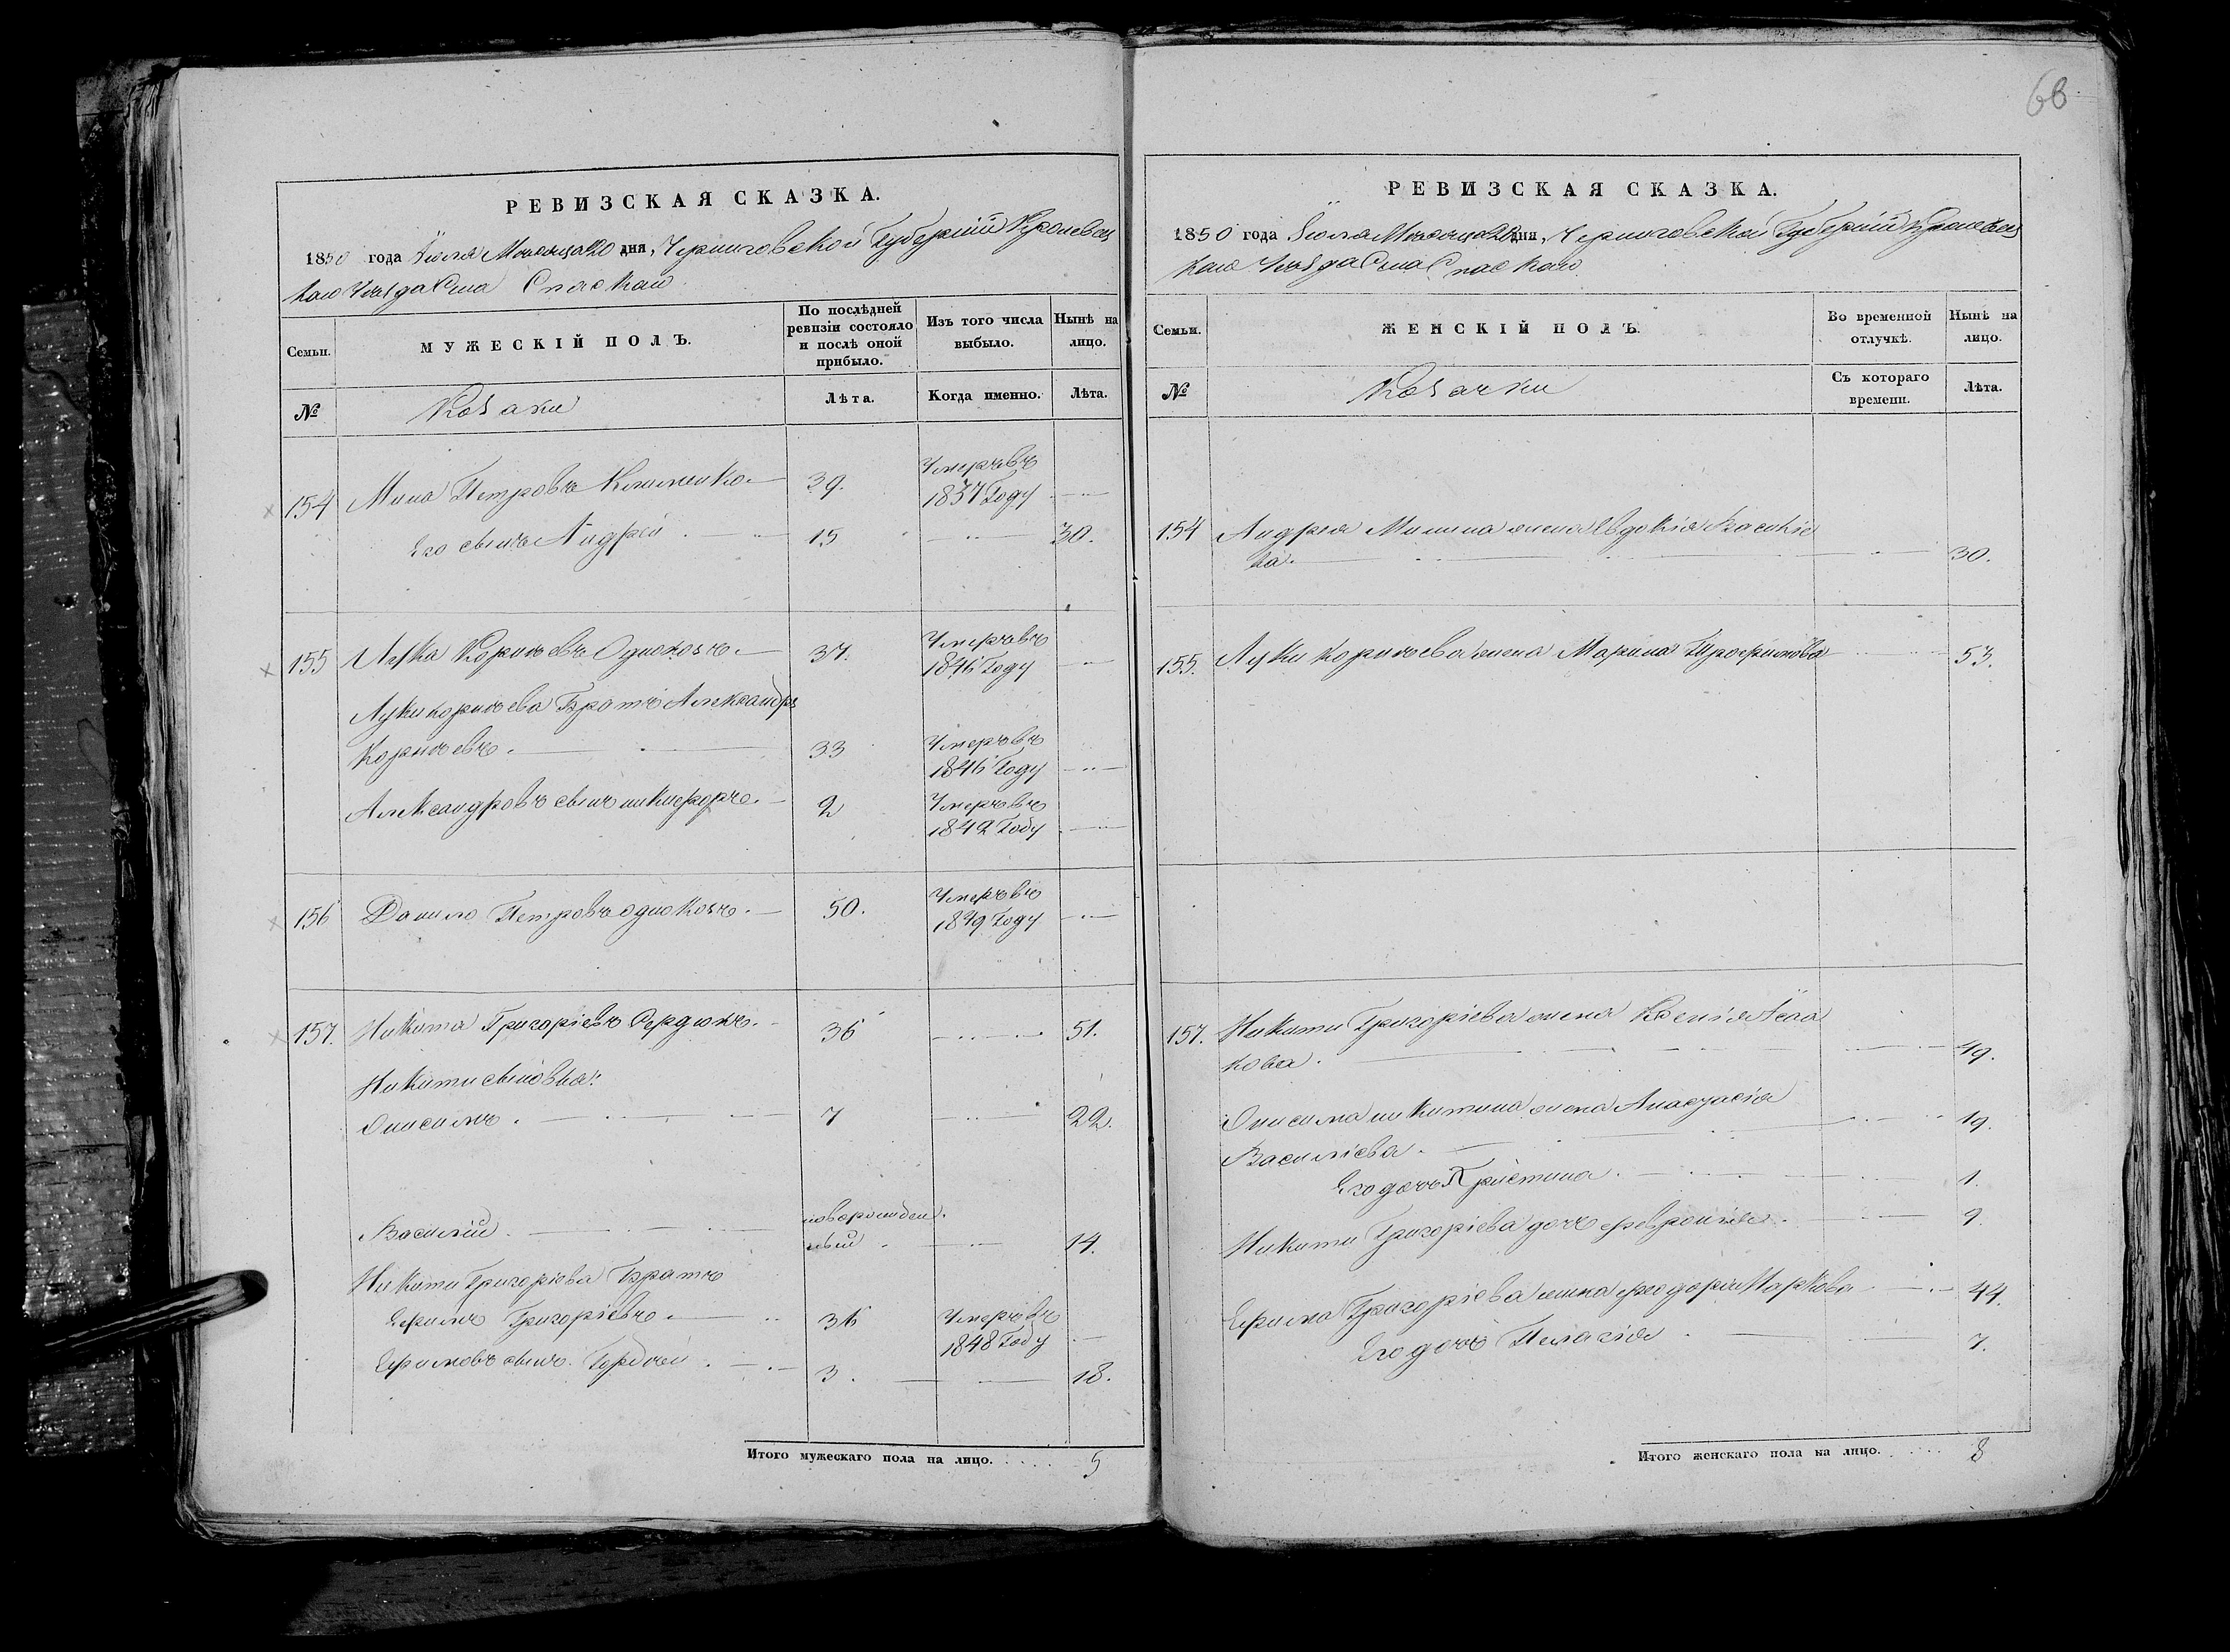 68
РЕВИЗСКАЯ СКАЗКА.
1850 года Іюля Месяца 20 дня, Черниговской Губерніи Кролевец
каго Уезда Села Спаскаго
Семьи.
МУЖЕСКІЙ ПОЛЪ.
По послѣдней ревизіи состояло и послѣ оной прибыло.
Изъ того числа выбыло.
Нынѣ на лицо.
№
Козаки
Лѣта.
Когда именно.
Лѣта.
154 Мина Петровъ Клименко 39. Умеръ въ
1837 Году
Его сынъ Андрей 15 30.
155 Лука Корнѣевъ Однокозъ 37. Умеръ въ
1846 Году
Луки Корнѣева Братъ Александръ
Корнѣевъ 33 Умеръ въ
1846 Году
Александровъ сынъ Никифоръ 2 Умеръ въ
1842 Году
156 Данило Петровъ Однокозъ 50. Умеръ въ
1849 Году
157. Никита Григоріевъ Сердюкъ 36 51.
Никиты сыновья:
Онисимъ 7 22.
Василій новорожден
ный 14.
Никиты Григоріева Братъ
Ефимъ Григоріевъ 36 Умеръ въ
1848 Году
Ефимовъ сынъ Гордѣй 3. 18.
Итого мужескаго пола на лицо. 5
РЕВИЗСКАЯ СКАЗКА.
1850 года Іюля Месяца 20 дня, Черниговской Губерніи Кролевец
каго Уезда Села Спаскаго
Семьи.
ЖЕНСКІЙ ПОЛЪ.
Во временной отлучкѣ.
Нынѣ на лицо.
№
Козачки
Съ котораго времени.
Лѣта.
154 Андрея Минина жена Евдокія
ва. 30.
155. Луки Корнѣева жена Марина Трофимова 53.
157. Никиты Григоріева жена Ксенія Исаа
кова 49.
Онисима Никитина жена Анастасія
Василіева 19.
Его дочь Христина 1.
Никиты Григоріева дочь Февронія 9.
Ефима Григоріева жена Феодора Маркова 44.
Его дочь Пелагія 7.
Итого женскаго пола на лицо. 8